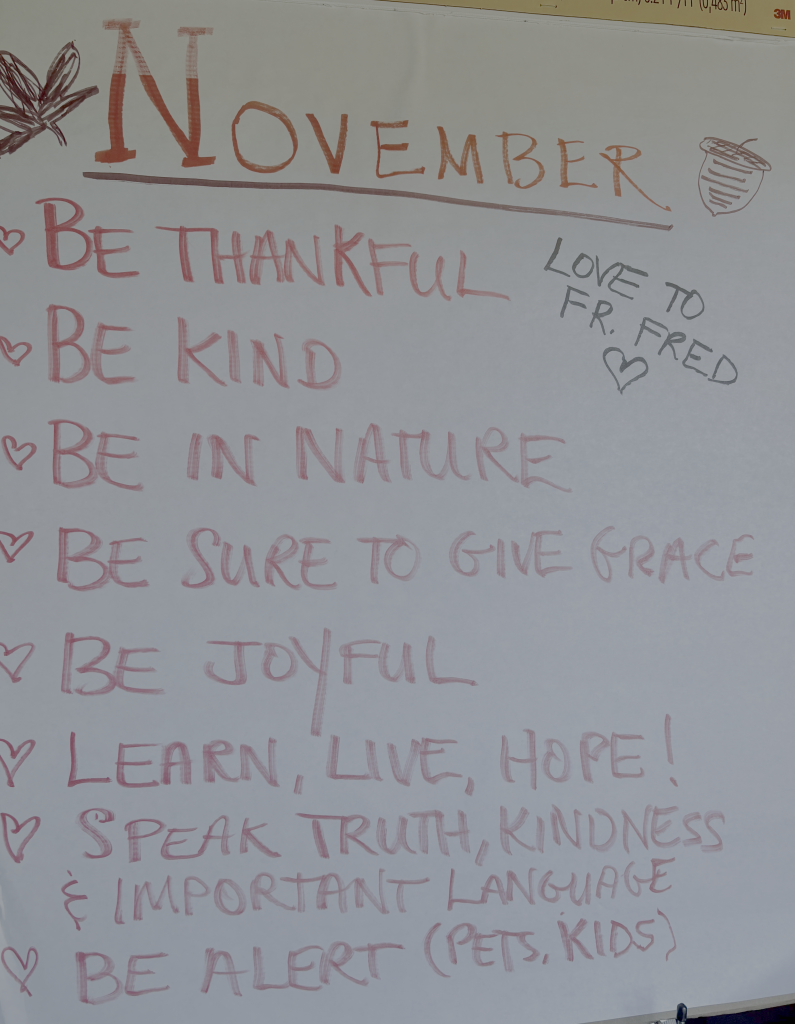 3M
NOVEMBER
BE THANKFUL
LOVE TO
FR. FRED
BE KIND
BE IN NATURE
BE SURE TO GIVE GRACE
BE JOYFUL
LEARN, LIVE, HOPE!
SPEAK TRUTH, KINDNESS
& IMPORTANT LANGUAGE
BE ALERT (PETS, KIDS)